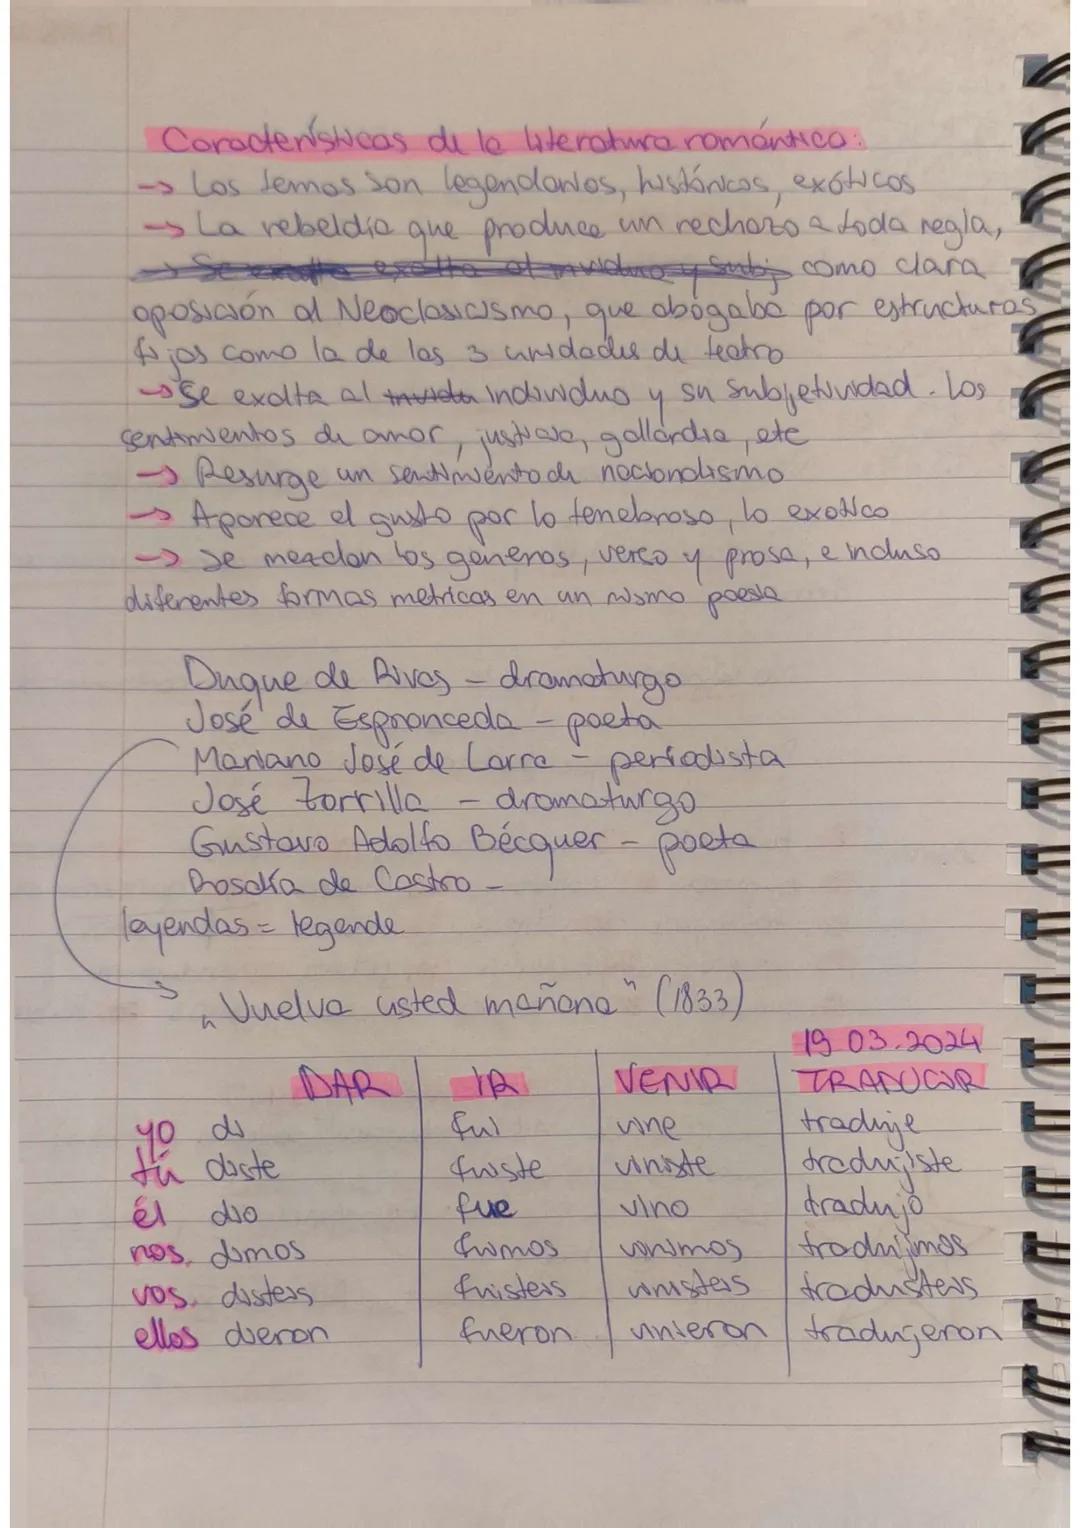 Características de la literatura romántica:
→ Los temas son legendarios, históricos, exóticos
→ La rebeldía que produce un rechazo a toda regla,
→ Se exalta al individuo y subj como clara
oposición al Neoclasicismo, que abógaba por estructuras
fijas como la de las 3 unidades de teatro
→ Se exalta al individuo y su subjetividad. Los
sentimientos de amor, justicia, gallardía, etc
→ Resurge un sentimiento de nacionalismo
→ Aparece el gusto por lo tenebroso, lo exotico
→ Se mezclan los géneros, verso y prosa, e incluso
diferentes formas metricas en un mismo poesía
Duque de Rivas – dramaturgo
José de Espronceda – poeta
Mariano José de Larra – periodista
José Zorrilla – dramaturgo
Gustavo Adolfo Bécquer – poeta
Rosalía de Castro –
leyendas = legende
„Vuelva usted mañana" (1833)
19.03.2024
DAR IR VENIR TRADUCIR
yo di fui vine traduje
tú diste fuiste viniste tradujiste
él dio fue vino tradujo
nos. dimos fuimos vinimos tradujimos
vos. disteis fuisteis vinisteis tradusteis
ellos dieron fueron vinieron tradujeron